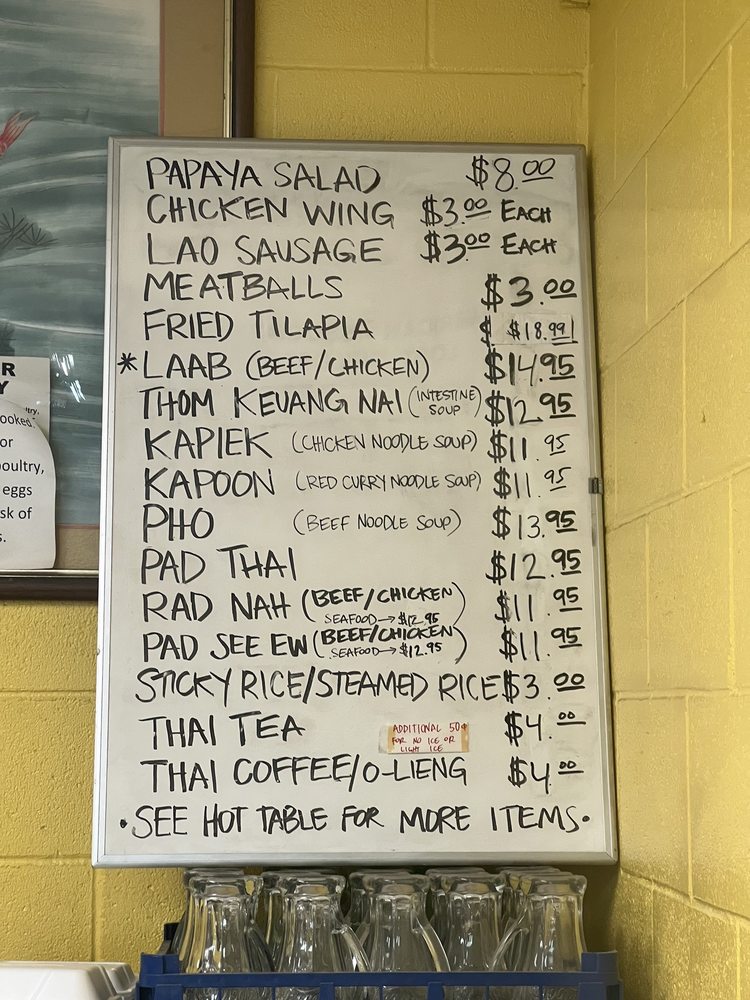 PAPAYA SALAD $8.00
CHICKEN WING $3.00 EACH
LAO SAUSAGE $3.00 EACH
MEATBALLS $3.00
FRIED TILAPIA $ $18.99
*LAAB (BEEF/CHICKEN) $14.95
THOM KEUANG NAI (INTESTINE SOUP) $12.95
KAPIEK (CHICKEN NOODLE SOUP) $11.95
KAPOON (RED CURRY NOODLE SOUP) $11.95
PHO (BEEF NOODLE SOUP) $13.95
PAD THAI $12.95
RAD NAH (BEEF/CHICKEN) $11.95
SEAFOOD→$12.95
PAD SEE EW (BEEF/CHICKEN) $11.95
SEAFOOD→$12.95
STICKY RICE/STEAMED RICE $3.00
THAI TEA $4.00
ADDITIONAL 50¢
FOR NO ICE OR
LIGHT ICE
THAI COFFEE/O-LIENG $4.00
•SEE HOT TABLE FOR MORE ITEMS•
R
Y
try,
ooked.
or
oultry,
eggs
sk of
s.